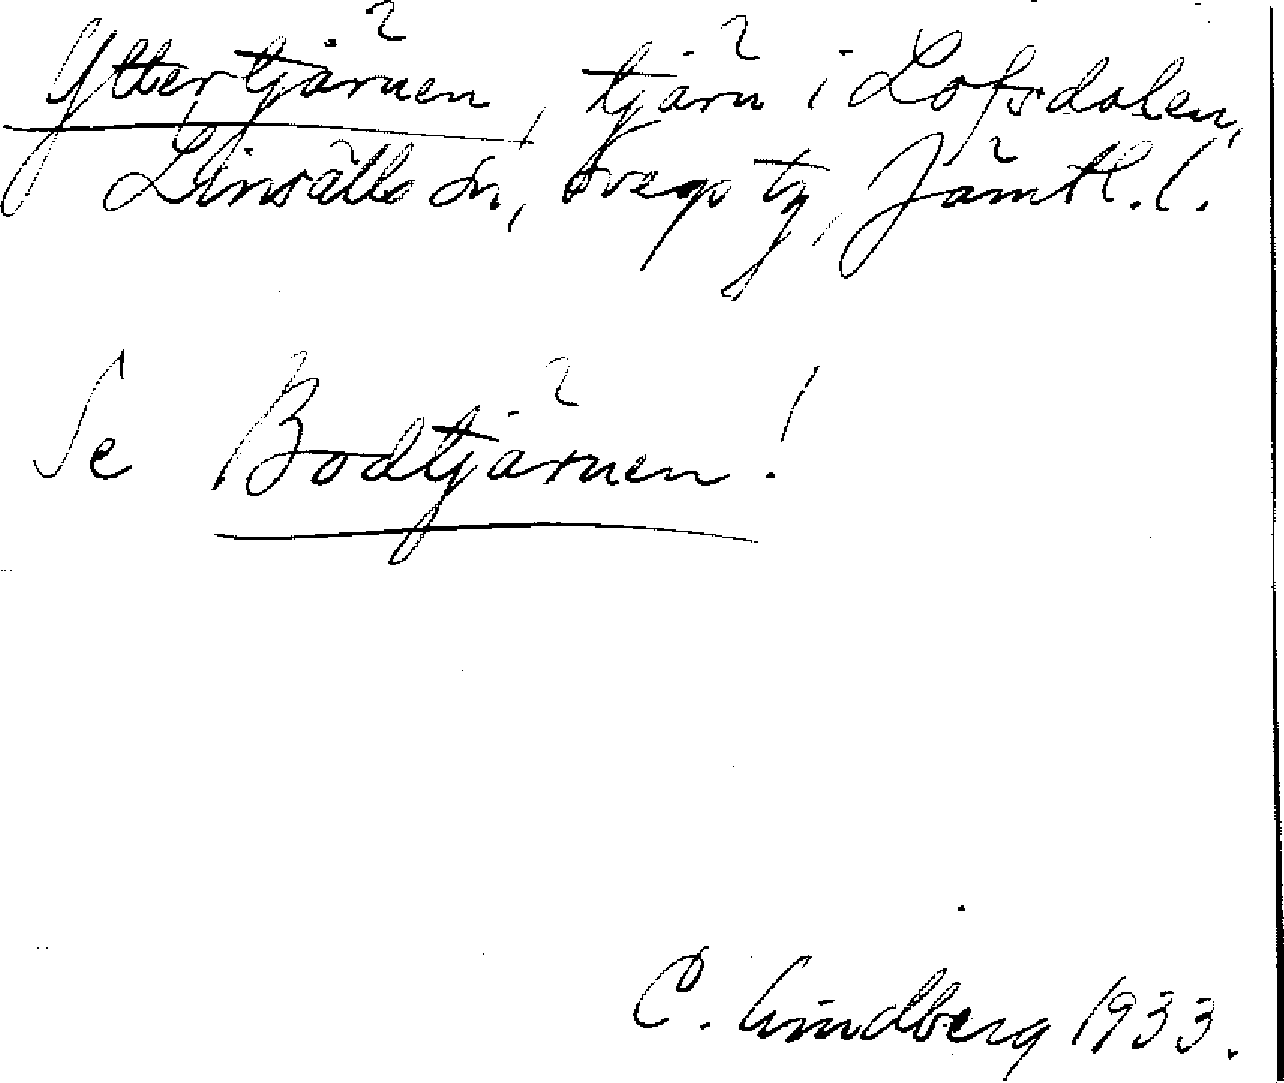 Yttertjärnen, tjärn i Lofsdalen,
Linsälls sn, Svegs tg, Jämtl. l.
Se Bodtjärnen!
C. Lindberg 1933.